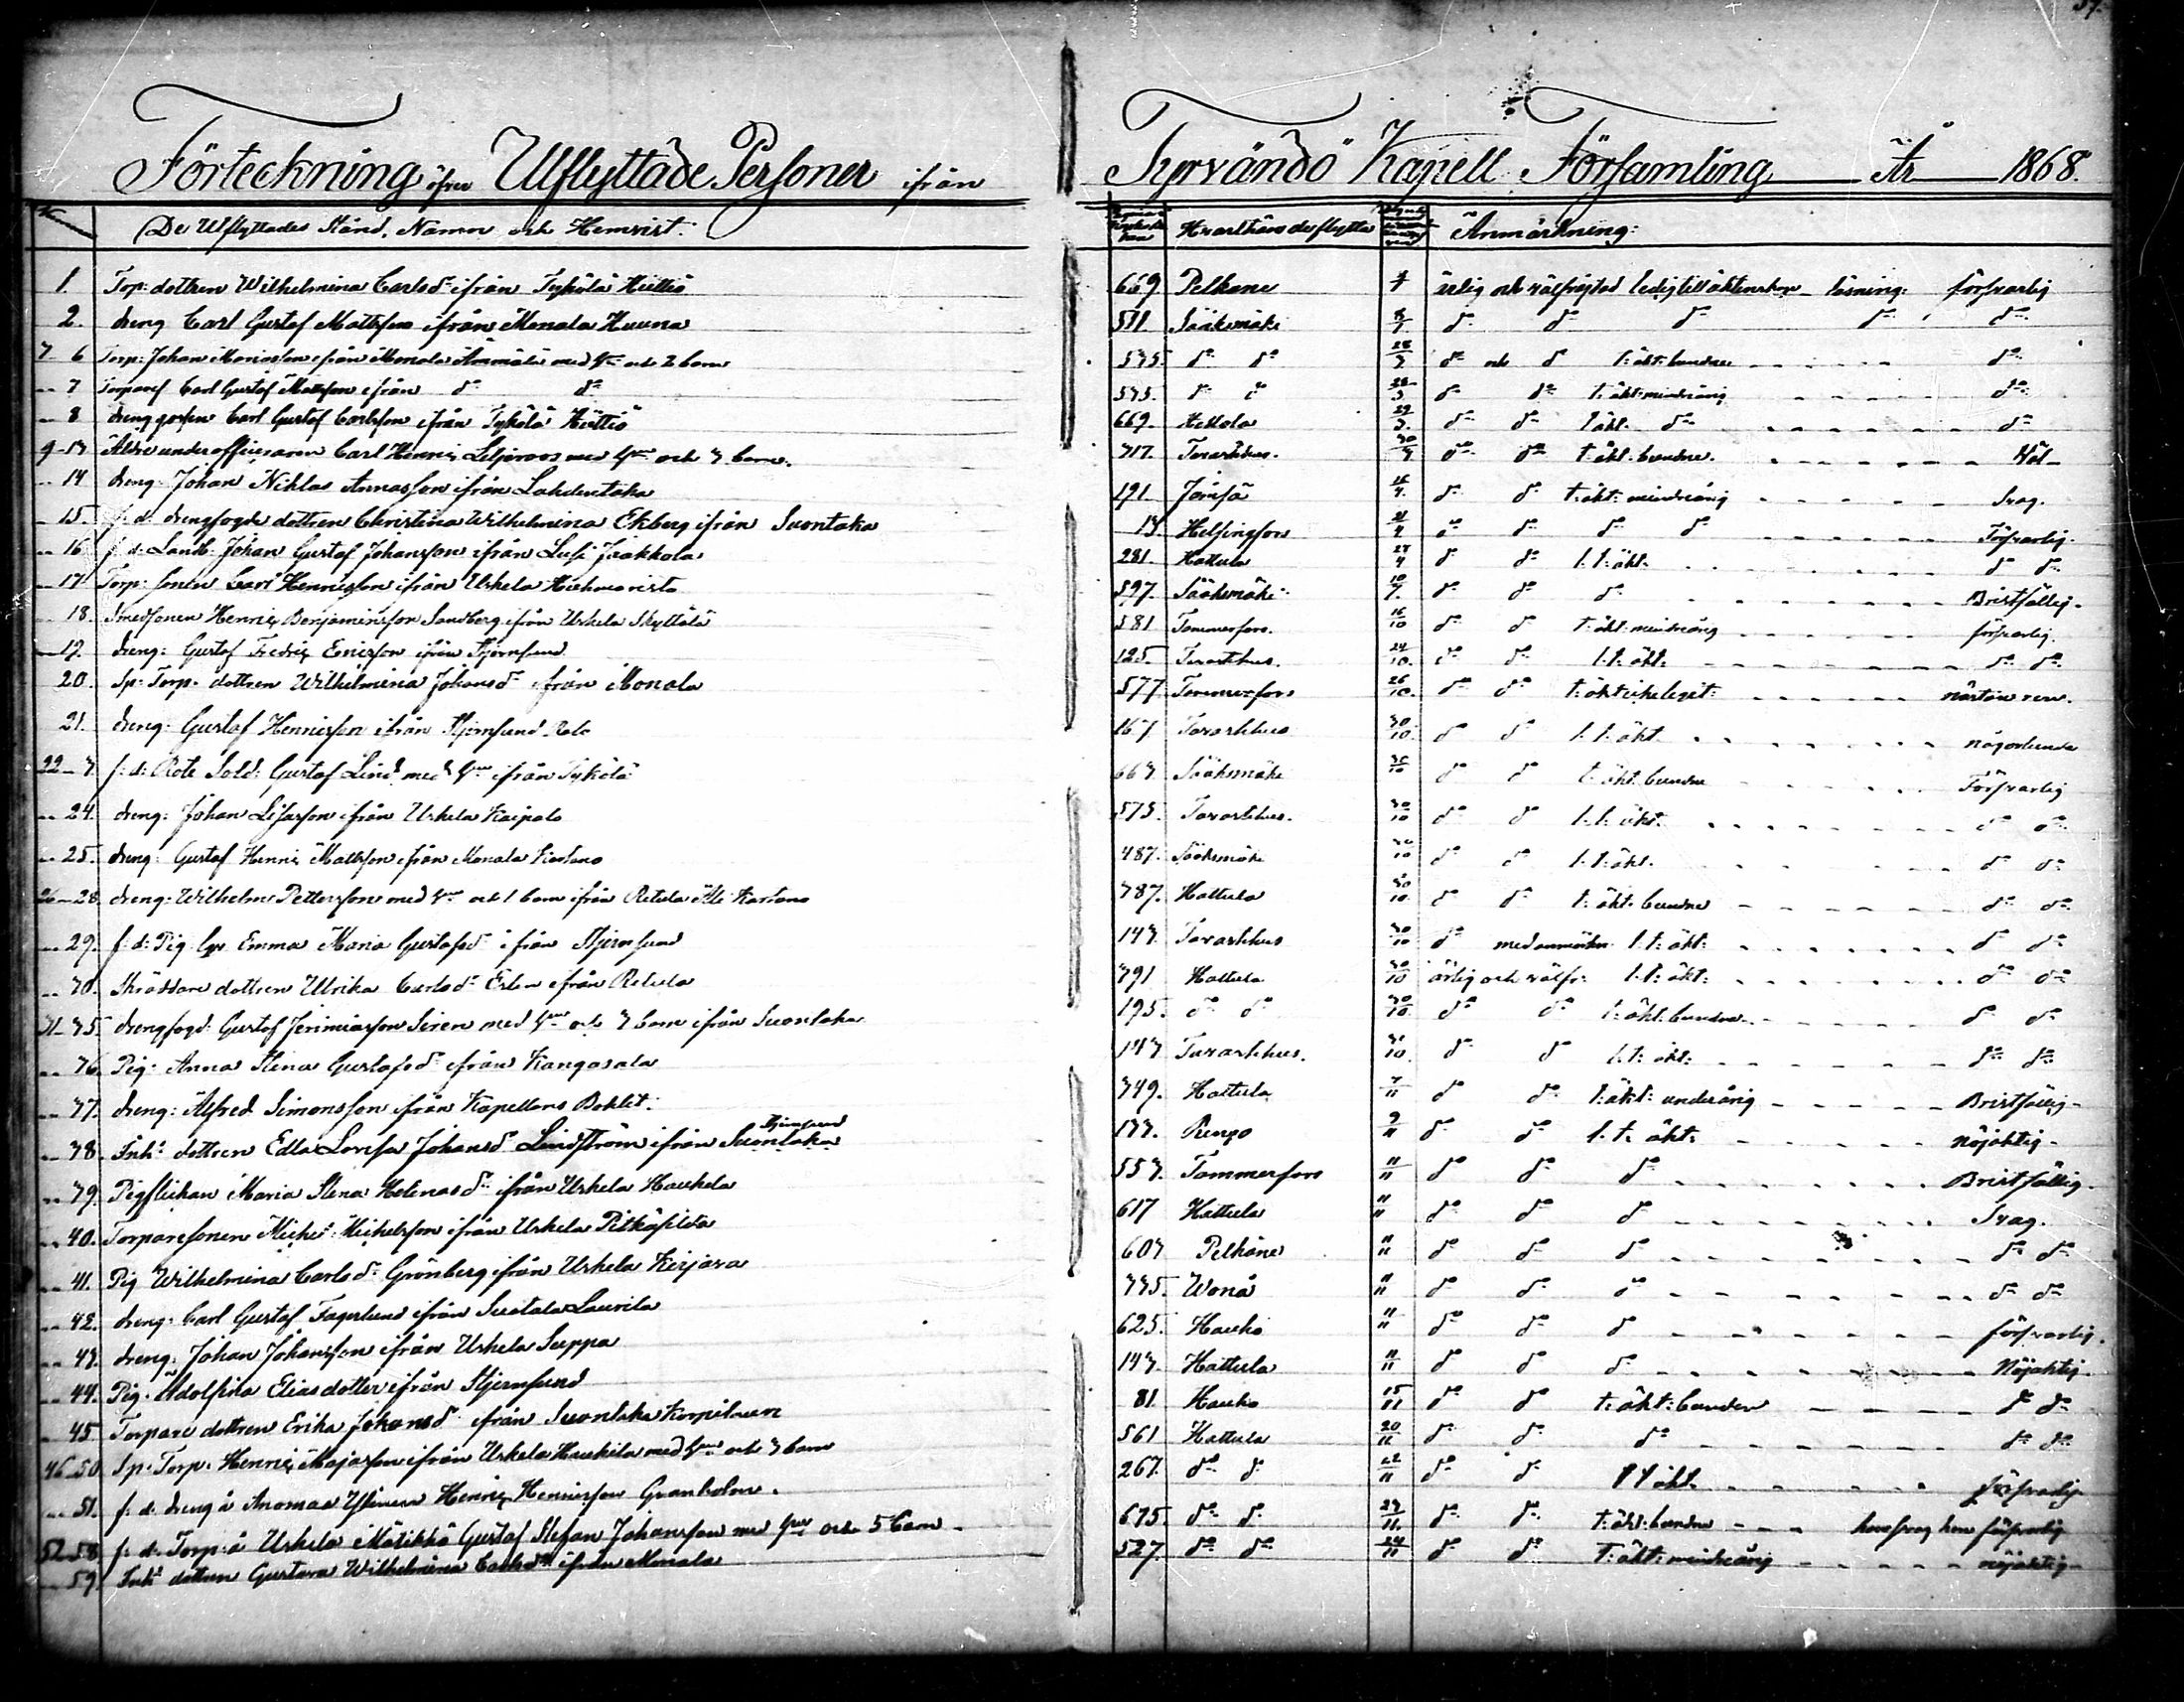 37.
Förteckning öfver Utflyttade Personer ifrån Tyrvändö Kapell Församling År 1868.
De Utflyttades Stånd, Namn och Hemvist. Hvarthän de flytta Anmärkning:
1. Torp: dottren Wilhelmina Carlsd:r ifrån Tykölä Hüttiö 669 Pelkäne ärlig och välfrejdad ledig till äktenskap läsning: försvarlig
2. dreng Carl Gustaf Mattsson ifrån Monala Huuna 511 Sääksmäki d:o d:o d:o d:o d:o
3 6 Torp: Johan ifrån Monala Ämmälä med h:u och 2 barn 535. d:o d:o 28/3 d:o och d:o t: äkt: bunden d:o
7 Torparef Carl Gustaf Mattsson ifrån d:o d:o 535. d:o d:o 28/3 d:o d:o t: äkt: minderårig d:o
8 drenggossen Carl Gustaf Carlsson ifrån Tykölä Hüttiö 669. 29/3. d:o d:o d:o d:o
9-13 Äldre underofficeraren Carl Henric Liljeroos med h:u och 3 barn. 317. Tavastehus. 30/3 d:o d:o t: äkt: bunden. Wäl
14 dreng: Johan Niklas Annasson ifrån Lahdentaka 191 Jämsä 16/4. d:o d:o t: äkt: minderårig Svag.
15. f: d: drengfogde dottren Christina Wilhelmina Ekberg ifrån Suontaka 13. Helsingfors 21/4 d:o d:o d:o d:o Försvarlig.
16 f: d: Landb: Johan Gustaf Johansson ifrån Lusi Jaakkola 281. Hattula 27/4 d:o d:o l: t: äkt: d:o d:o
17 Torp: sonen Carl Henricsson ifrån Uskela 597. Sääksmäki 10/7. d:o d:o d:o Bristfällig.
18. Smedsonen Henric Benjaminsson Sandberg ifrån Uskela Skyttälä 581 Tammerfors. 16/10 d:o d:o t: äkt: minderårig försvarlig.
19. dreng: Gustaf Fredric Ericsson ifrån Stjernsund 125. Tavastehus. 24/10. d:o d:o l: t: äkt: d:o d:o
20. Sp: Torp: dottren Wilhelmina Johansd:r ifrån Monala 577 Tammerfors 26/10. d:o d:o
21. dreng: Gustaf Henricsson ifrån Stjernsund 167 Tavastehus 30/10. d:o d:o l: t: äkt. någorlunda
22-3 f: d: Rote Sold: Gustaf Lind med h:u ifrån Tykölä 663. Sääksmäki 30/10 d:o d:o t: äkt: bunden Försvarlig
24. dreng: Johan Lisasson ifrån Uskela Kaipalo 573. Tavastehus. 30/10 d:o d:o l: t: äkt. d:o d:o
25. dreng: Gustaf Henric Mattsson ifrån Monala 487. Sääksmäki 30/10 d:o d:o l: t: äkt. d:o d:o
26-28 dreng: Wilhelm Pettersson med h:u och 1 barn ifrån Retula Ali Kartano 387. Hattula 30/10. d:o d:o t: äkt: bunden d:o d:o
29. f: d: Pig: Emma Maria Gustafsd:r ifrån Stjernsund 143. Tavastehus 30/10 d:o med anmärkn. l: t: äkt: d:o d:o
30. Skräddare dottren Ulrika Carlsd:r Erlen ifrån Retula 391 Hattula 30/10 ärlig och välfr: l: t: äkt: d:o d:o
31-35 drengfogd: Gustaf Jeremiasson Siren med h:u och 3 barn ifrån Suontaka 195. d:o d:o 30/10. d:o d:o t: äkt: bunden d:o d:o
36 Pig: Anna Stina Gustafsd:r ifrån Kangasala 143 Tavastehus. 31/10. d:o d:o l: t: äkt: d:o d:o
37. dreng: Alfred Simonsson ifrån Kapellans Bohlet: 349. Hattula 7/11 d:o d:o t: äkt: underårig Bristfällig
38. Inh:s dottren Edla Lovisa Johansd:r Lindström ifrån Suontaka Stjernsund 133. Rengo 9/11 d:o d:o l. t. äkt: nöjaktig
39. Pigflickan Maria Stina Helenasd:r ifrån Uskela Haukela 553. Tammerfors 11/11 d:o d:o d:o Bristfällig.
40. Torparesonen Michel Michelsson ifrån Uskela Pitkäsilta 617 Hattula 11/11 d:o d:o d:o Svag.
41. Pig Wilhelmina Carlsd:r Grönberg ifrån Uskela Kirjava 603 Pelkäne 11/11 d:o d:o d:o d:o d:o
42. dreng: Carl Gustaf Fagerlund ifrån Suotala Laurila 335. Wonå 11/11 d:o d:o d:o d:o d:o
43. dreng: Johan Johansson ifrån Uskela Seppä 625. Hauho 11/11 d:o d:o d:o försvarlig.
44. Pig: Adolfina Eliasdotter ifrån Stjernsund 143. Hattula 11/11 d:o d:o d:o Nöjaktig.
45 Torpare dottren Erika Johansd:r ifrån Suontaka 81. Hauho 15/11 d:o d:o t: äkt: bunden d:o d:o
46-50. Sp: Torp: Henric Majasson ifrån Uskela Haukila med h:u och 3 barn 561 Hattula 20/11 d:o d:o d:o d:o d:o
51. f: d: dreng å Anomaa Henric Henricsson Granholm. 267. d:o d:o 22/11 d:o d:o äkt. försvarlig
52-58 f: d: Torp: å Uskela Mätikkö Gustaf Stefan Johansson med h:u och 5 barn 675. d:o d:o 23/11. d:o d:o t: äkt: bunden han svag hon försvarlig
59 Inh:s dottren Gustava Wilhelmina Carlsd:r ifrån Monala 527. d:o d:o 24/11 d:o d:o t: äkt: minderårig nöjaktig